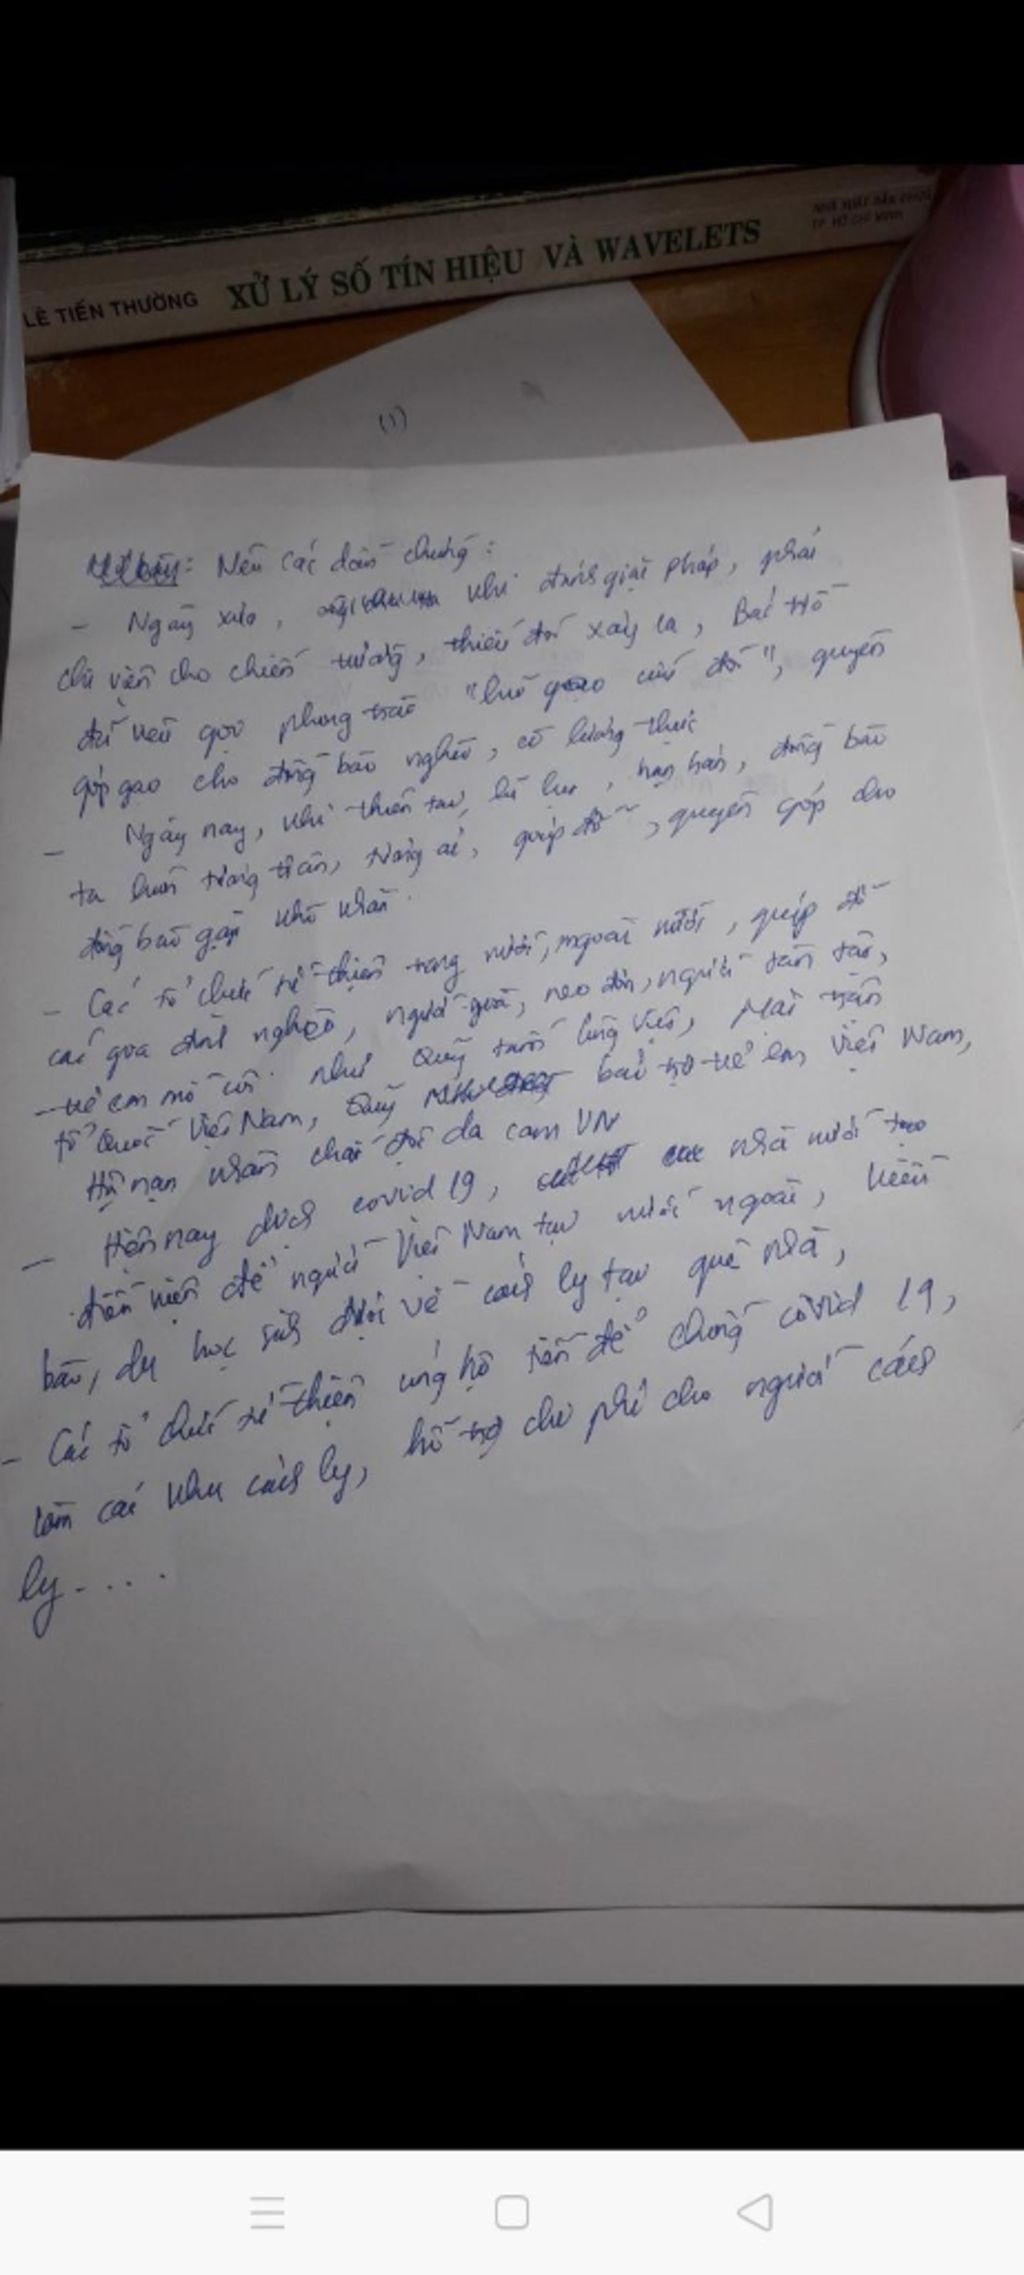 NHÀ XUẤT BẢN
TP. HỒ CHÍ MINH
LÊ TIẾN THƯỜNG XỬ LÝ SỐ TÍN HIỆU VÀ WAVELETS
(1)
: Nêu các dẫn chứng :
- Ngày xưa, khi đánh giặc pháp, phải
chi viện cho chiến trường, thiếu đói xảy ra, Bác Hồ
đã kêu gọi phong trào "hũ gạo cứu đói", quyên
góp gạo cho đồng bào nghèo, có lương thực
- Ngày nay, khi thiên tai, lũ lụt, hạn hán, đồng bào
ta luôn tương thân, tương ái, giúp đỡ, quyên góp cho
đồng bào gặp khó khăn.
- Các tổ chức từ thiện trong nước, ngoài nước, giúp đỡ
các gia đình nghèo, người già, neo đơn, người tàn tật,
- trẻ em mồ côi như Quỹ tấm lòng Việt, Mặt trận
tổ Quốc Việt Nam, Quỹ bảo trợ trẻ em Việt Nam,
Hội nạn nhân chất độc da cam VN
- Hiện nay dịch covid 19, nhà nước tạo
điều kiện để người Việt Nam tại nước ngoài, kiều
bào, du học sinh được về cách ly tại quê nhà,
- Các tổ chức từ thiện ủng hộ tiền để chống covid 19,
làm các khu cách ly, hỗ trợ chi phí cho người cách
ly....